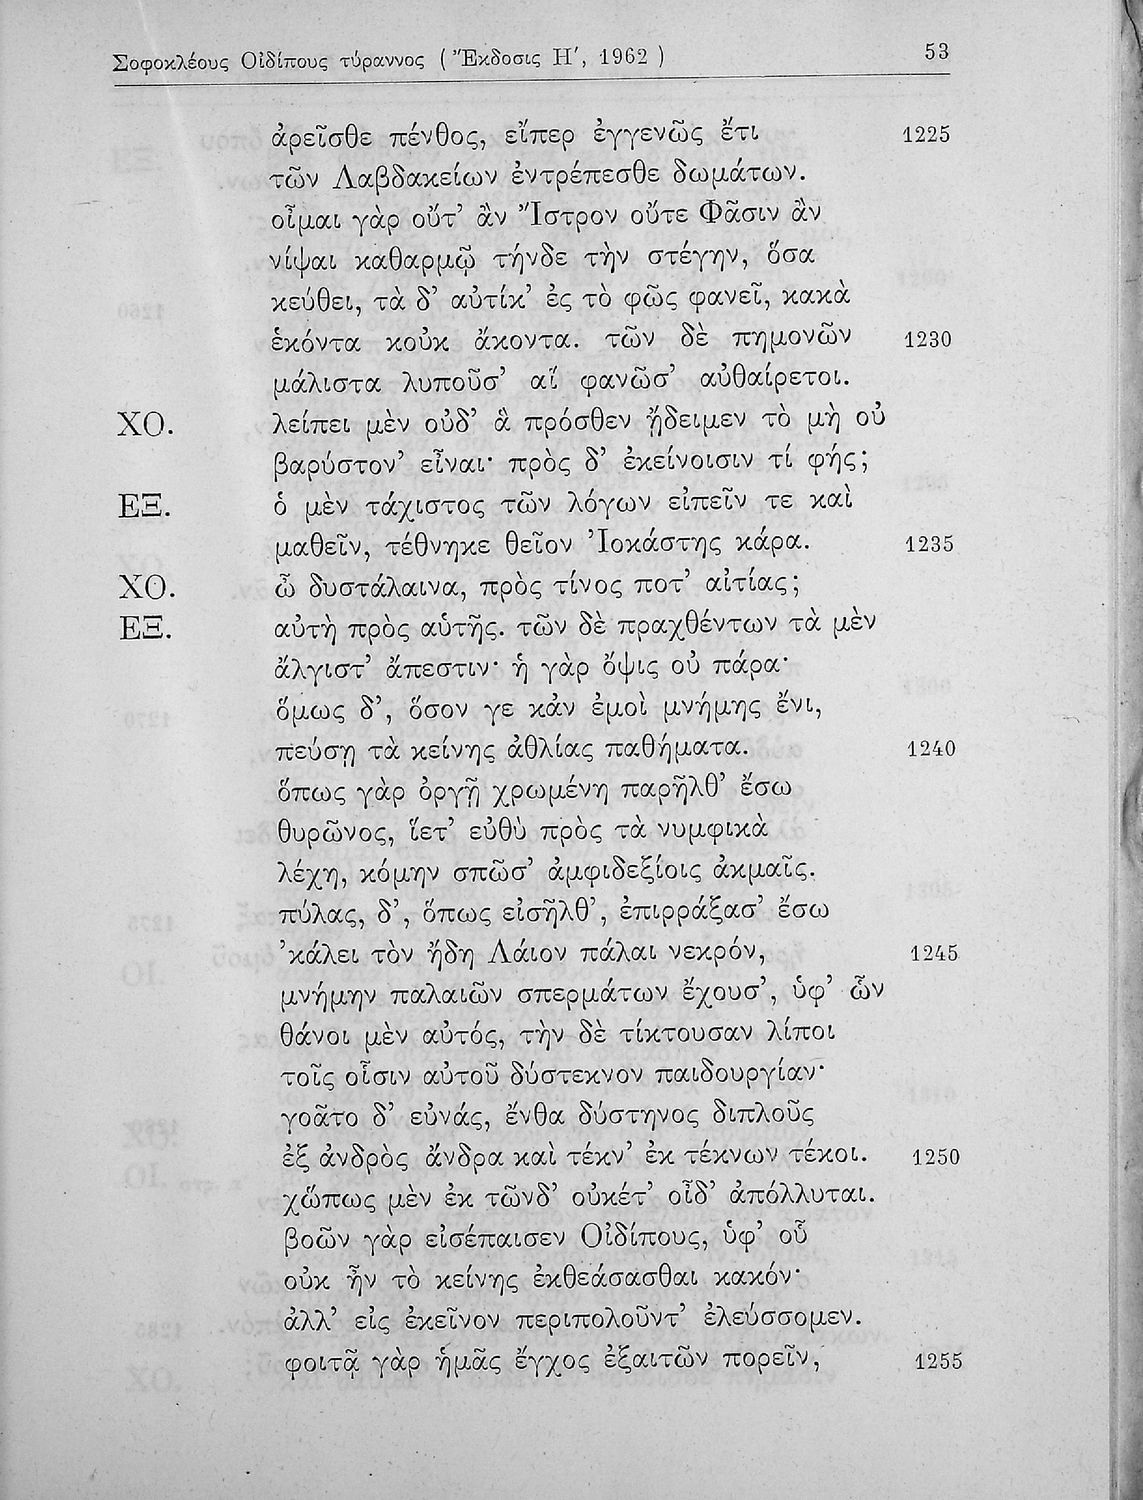 Σοφοκλέους Οἰδίπους τύραννος ( Ἔκδοσις Η΄, 1962 ) 53
ἀρεῖσθε πένθος, εἴπερ ἐγγενῶς ἔτι 1225
τῶν Λαβδακείων ἐντρέπεσθε δωμάτων.
οἶμαι γὰρ οὔτ’ ἂν Ἴστρον οὔτε Φᾶσιν ἂν
νίψαι καθαρμῷ τήνδε τὴν στέγην, ὅσα
κεύθει, τὰ δ’ αὐτίκ’ ἐς τὸ φῶς φανεῖ, κακὰ
ἑκόντα κοὐκ ἄκοντα. τῶν δὲ πημονῶν 1230
μάλιστα λυποῦσ’ αἳ φανῶσ’ αὐθαίρετοι.
ΧΟ. λείπει μὲν οὐδ’ ἃ πρόσθεν ᾔδειμεν τὸ μὴ οὐ
βαρύστον’ εἶναι· πρὸς δ’ ἐκείνοισιν τί φής;
ΕΞ. ὁ μὲν τάχιστος τῶν λόγων εἰπεῖν τε καὶ
μαθεῖν, τέθνηκε θεῖον Ἰοκάστης κάρα. 1235
ΧΟ. ὦ δυστάλαινα, πρὸς τίνος ποτ’ αἰτίας;
ΕΞ. αὐτὴ πρὸς αὑτῆς. τῶν δὲ πραχθέντων τὰ μὲν
ἄλγιστ’ ἄπεστιν· ἡ γὰρ ὄψις οὐ πάρα·
ὅμως δ’, ὅσον γε κἀν ἐμοὶ μνήμης ἔνι,
πεύσῃ τὰ κείνης ἀθλίας παθήματα. 1240
ὅπως γὰρ ὀργῇ χρωμένη παρῆλθ’ ἔσω
θυρῶνος, ἵετ’ εὐθὺ πρὸς τὰ νυμφικὰ
λέχη, κόμην σπῶσ’ ἀμφιδεξίοις ἀκμαῖς.
πύλας, δ’, ὅπως εἰσῆλθ’, ἐπιρράξασ’ ἔσω
’κάλει τὸν ἤδη Λάιον πάλαι νεκρόν, 1245
μνήμην παλαιῶν σπερμάτων ἔχουσ’, ὑφ’ ὧν
θάνοι μὲν αὐτός, τὴν δὲ τίκτουσαν λίποι
τοῖς οἷσιν αὐτοῦ δύστεκνον παιδουργίαν·
γοᾶτο δ’ εὐνάς, ἔνθα δύστηνος διπλοῦς
ἐξ ἀνδρὸς ἄνδρα καὶ τέκν’ ἐκ τέκνων τέκοι. 1250
χὤπως μὲν ἐκ τῶνδ’ οὐκέτ’ οἶδ’ ἀπόλλυται.
βοῶν γὰρ εἰσέπαισεν Οἰδίπους, ὑφ’ οὗ
οὐκ ἦν τὸ κείνης ἐκθεάσασθαι κακόν·
ἀλλ’ εἰς ἐκεῖνον περιπολοῦντ’ ἐλεύσσομεν.
φοιτᾷ γὰρ ἡμᾶς ἔγχος ἐξαιτῶν πορεῖν, 1255